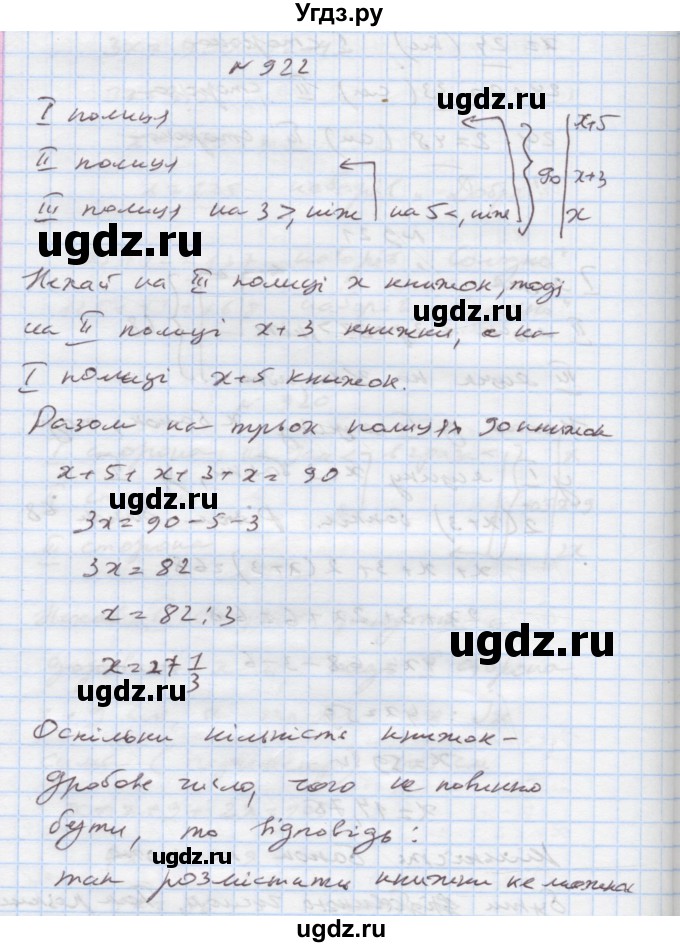 Угдз.ру
N 922
ugdz.ru
I полиця
x+5
II полиця
90
x+3
III полиця на 3 >, ніж на 5 <, ніж
x
ugdz.ru
Нехай на III полиці x книжок, тоді
ugdz.ru
на II полиці x+3 книжки, а на
I полиці x+5 книжок.
Разом на трьох полицях 90 книжок
x+5+x+3+x=90
3x=90-5-3
3x=82
x=82:3
ugdz.ru
x=27 1/3
ugdz.ru
Оскільки кількість книжок -
дробове число, чого не повинно
бути, то відповідь:
ugdz.ru
так розмістити книжки не можна
ugdz.ru